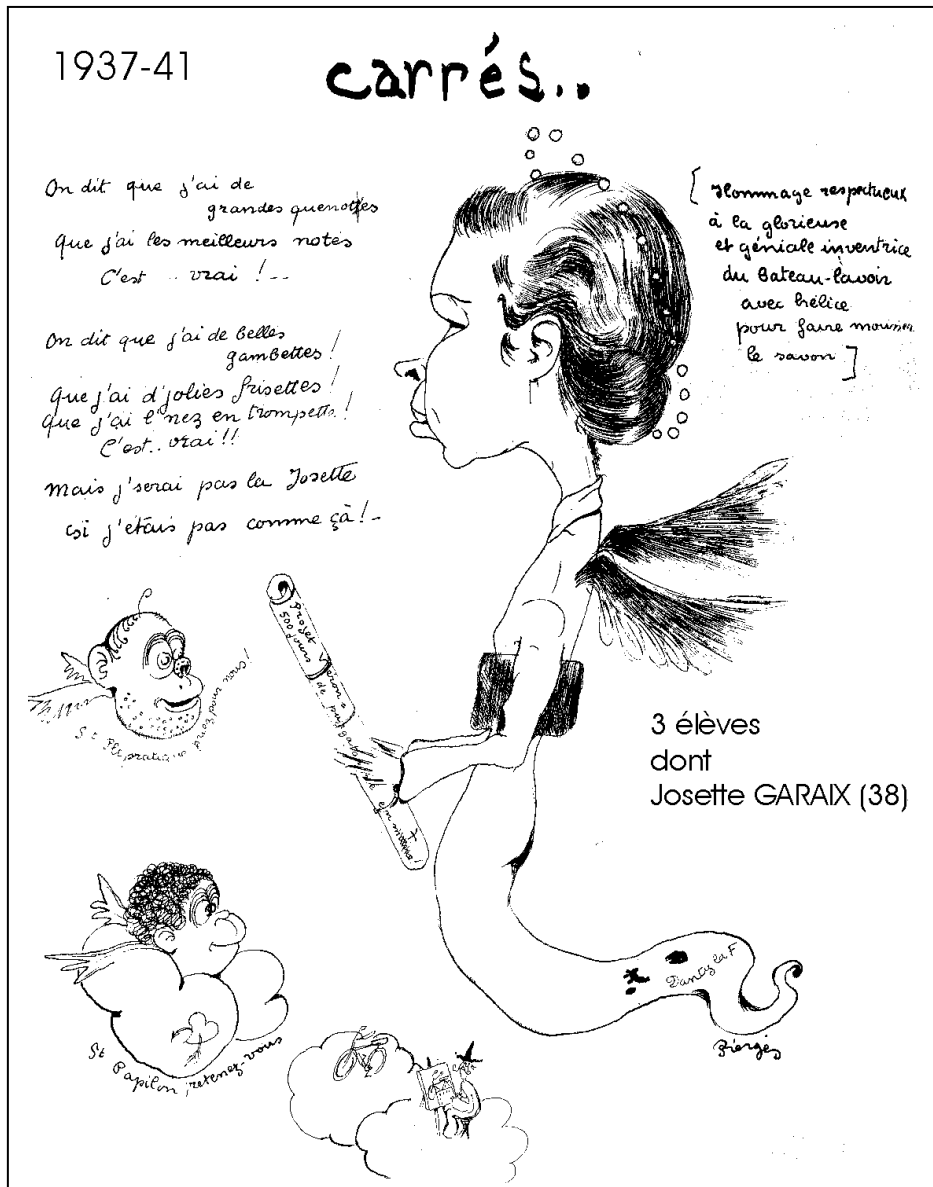 1937-41
carrés..
On dit que j'ai de
grandes quenottes
Que j'ai les meilleurs notes
C'est .. vrai !..
On dit que j'ai de belles
gambettes !
Que j'ai d'jolies frisettes !
Que j'ai l'nez en trompette !
C'est.. vrai !!
Mais j'serai pas la Josette
si j'étais pas comme çà !..
[ Hommage respectueux
à la glorieuse
et géniale inventrice
du Bateau-lavoir
avec hélice
pour faire mousser
le savon ]
projet
500 jours de
en
St priez pour nous !
3 élèves
dont
Josette GARAIX (38)
St Papilon, retenez-vous
la F